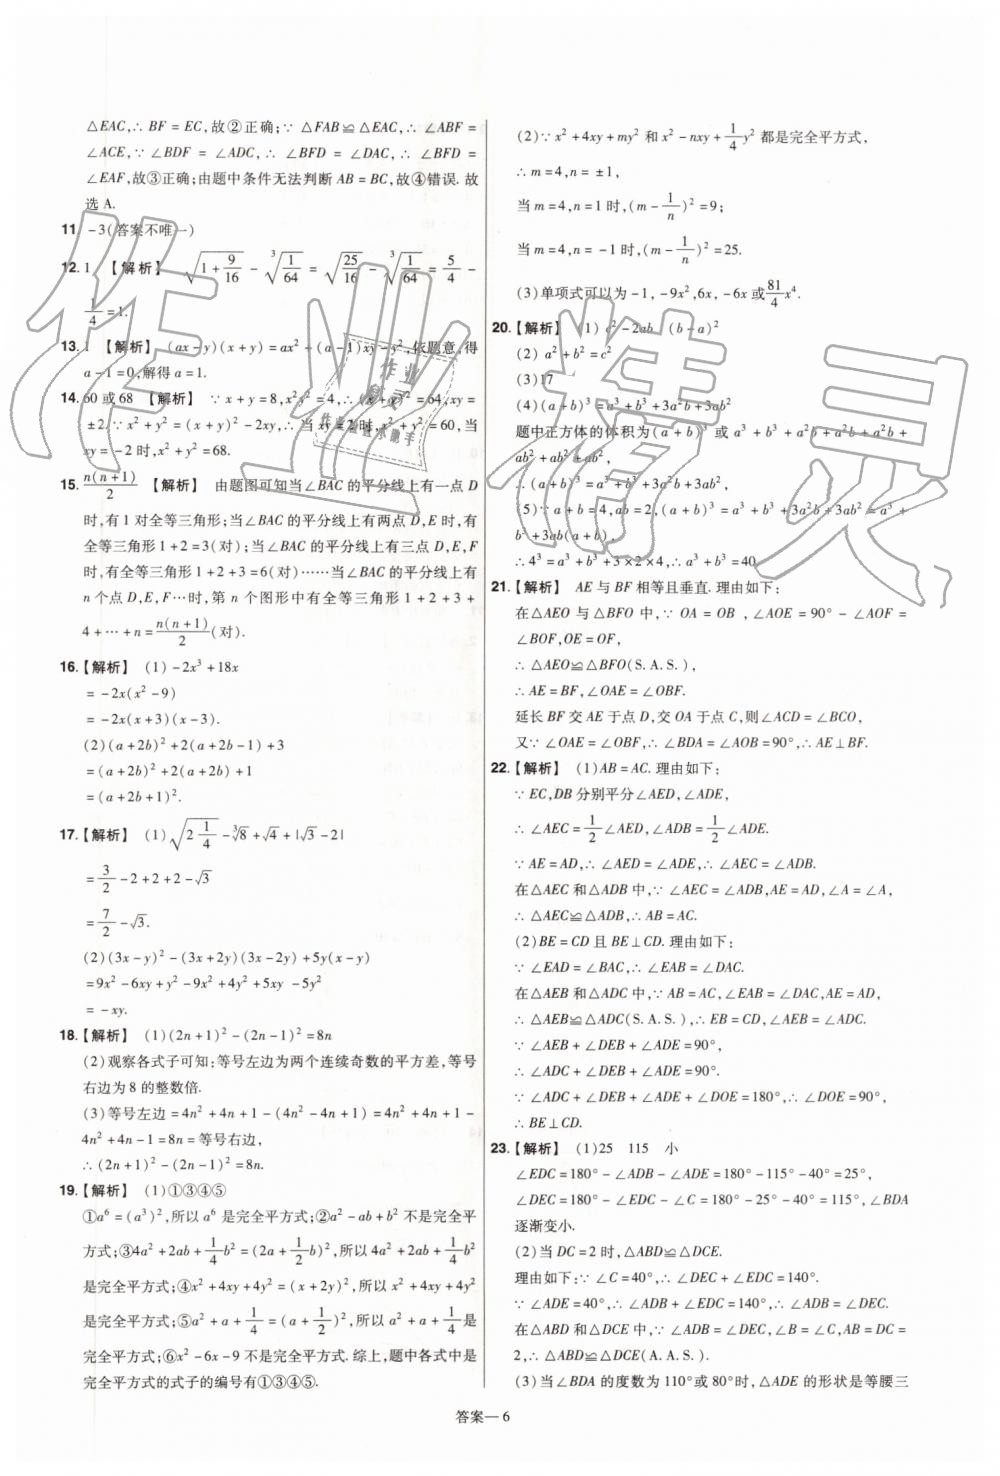 △EAC,∴ BF = EC,故②正确;∵ △FAB≌△EAC,∴ ∠ABF =
∠ACE,∵ ∠BDF = ∠ADC,∴ ∠BFD = ∠DAC,∴ ∠BFD =
∠EAF,故③正确;由题中条件无法判断 AB = BC,故④错误. 故
选 A.
11. -3(答案不唯一)
12. 1 【解析】 √(1+9/16) - ³√(1/64) = √(25/16) - ³√(1/64) = 5/4 -
1/4 = 1.
13. 1 【解析】 (ax-y)(x+y)=ax²+(a-1)xy-y²,依题意,得
a-1=0,解得 a=1.
14. 60 或 68 【解析】 ∵ x+y=8,x²y²=4,∴ (x+y)²=64,xy=
±2. ∵ x²+y²=(x+y)²-2xy,∴ 当 xy=2 时,x²+y²=60,当
xy=-2 时,x²+y²=68.
15. n(n+1)/2 【解析】 由题图可知当∠BAC 的平分线上有一点 D
时,有 1 对全等三角形;当∠BAC 的平分线上有两点 D,E 时,有
全等三角形 1+2=3(对);当∠BAC 的平分线上有三点 D,E,F
时,有全等三角形 1+2+3=6(对)……当∠BAC 的平分线上有
n 个点 D,E,F…时,第 n 个图形中有全等三角形 1+2+3+
4+…+n=n(n+1)/2(对).
16.【解析】 (1)-2x³+18x
=-2x(x²-9)
=-2x(x+3)(x-3).
(2)(a+2b)²+2(a+2b-1)+3
=(a+2b)²+2(a+2b)+1
=(a+2b+1)².
17.【解析】 (1)√(2 1/4)-³√8+√4+|√3-2|
=3/2-2+2+2-√3
=7/2-√3.
(2)(3x-y)²-(3x+2y)(3x-2y)+5y(x-y)
=9x²-6xy+y²-9x²+4y²+5xy-5y²
=-xy.
18.【解析】 (1)(2n+1)²-(2n-1)²=8n
(2)观察各式子可知:等号左边为两个连续奇数的平方差,等号
右边为 8 的整数倍.
(3)等号左边=4n²+4n+1-(4n²-4n+1)=4n²+4n+1-
4n²+4n-1=8n=等号右边,
∴ (2n+1)²-(2n-1)²=8n.
19.【解析】 (1)①③④⑤
①a⁶=(a³)²,所以 a⁶ 是完全平方式;②a²-ab+b² 不是完全平
方式;③4a²+2ab+1/4b²=(2a+1/2b)²,所以 4a²+2ab+1/4b²
是完全平方式;④x²+4xy+4y²=(x+2y)²,所以 x²+4xy+4y²
是完全平方式;⑤a²+a+1/4=(a+1/2)²,所以 a²+a+1/4是
完全平方式;⑥x²-6x-9 不是完全平方式. 综上,题中各式中是
完全平方式的式子的编号有①③④⑤.
(2)∵ x²+4xy+my² 和 x²-nxy+1/4y² 都是完全平方式,
∴ m=4,n=±1,
当 m=4,n=1 时,(m-1/n)²=9;
当 m=4,n=-1 时,(m-1/n)²=25.
(3)单项式可以为-1,-9x²,6x,-6x 或81/4x⁴.
20.【解析】 (1)c²-2ab (b-a)²
(2) a²+b²=c²
(3)17
(4)(a+b)³=a³+b³+3a²b+3ab²
题中正方体的体积为(a+b)³ 或 a³+b³+a²b+a²b+a²b+
ab²+ab²+ab²,
∴ (a+b)³=a³+b³+3a²b+3ab²,
(5)∵ a+b=4,ab=2,(a+b)³=a³+b³+3a²b+3ab²=a³+
b³+3ab(a+b),
∴ 4³=a³+b³+3×2×4,∴ a³+b³=40.
21.【解析】 AE 与 BF 相等且垂直. 理由如下:
在△AEO 与△BFO 中,∵ OA=OB,∠AOE=90°-∠AOF=
∠BOF,OE=OF,
∴ △AEO≌△BFO(S.A.S.),
∴ AE=BF,∠OAE=∠OBF.
延长 BF 交 AE 于点 D,交 OA 于点 C,则∠ACD=∠BCO,
又∵ ∠OAE=∠OBF,∴ ∠BDA=∠AOB=90°,∴ AE⊥BF.
22.【解析】 (1)AB=AC. 理由如下:
∵ EC,DB 分别平分∠AED,∠ADE,
∴ ∠AEC=1/2∠AED,∠ADB=1/2∠ADE.
∵ AE=AD,∴ ∠AED=∠ADE,∴ ∠AEC=∠ADB.
在△AEC 和△ADB 中,∵ ∠AEC=∠ADB,AE=AD,∠A=∠A,
∴ △AEC≌△ADB,∴ AB=AC.
(2)BE=CD 且 BE⊥CD. 理由如下:
∵ ∠EAD=∠BAC,∴ ∠EAB=∠DAC.
在△AEB 和△ADC 中,∵ AB=AC,∠EAB=∠DAC,AE=AD,
∴ △AEB≌△ADC(S.A.S.),∴ EB=CD,∠AEB=∠ADC.
∵ ∠AEB+∠DEB+∠ADE=90°,
∴ ∠ADC+∠DEB+∠ADE=90°.
∵ ∠ADC+∠DEB+∠ADE+∠DOE=180°,∴ ∠DOE=90°,
∴ BE⊥CD.
23.【解析】 (1)25 115 小
∠EDC=180°-∠ADB-∠ADE=180°-115°-40°=25°,
∠DEC=180°-∠EDC-∠C=180°-25°-40°=115°,∠BDA
逐渐变小.
(2)当 DC=2 时,△ABD≌△DCE.
理由如下:∵ ∠C=40°,∴ ∠DEC+∠EDC=140°.
∵ ∠ADE=40°,∴ ∠ADB+∠EDC=140°,∴ ∠ADB=∠DEC.
在△ABD 和△DCE 中,∵ ∠ADB=∠DEC,∠B=∠C,AB=DC=
2,∴ △ABD≌△DCE(A.A.S.).
(3)当∠BDA 的度数为 110°或 80°时,△ADE 的形状是等腰三
答案—6
作业精灵